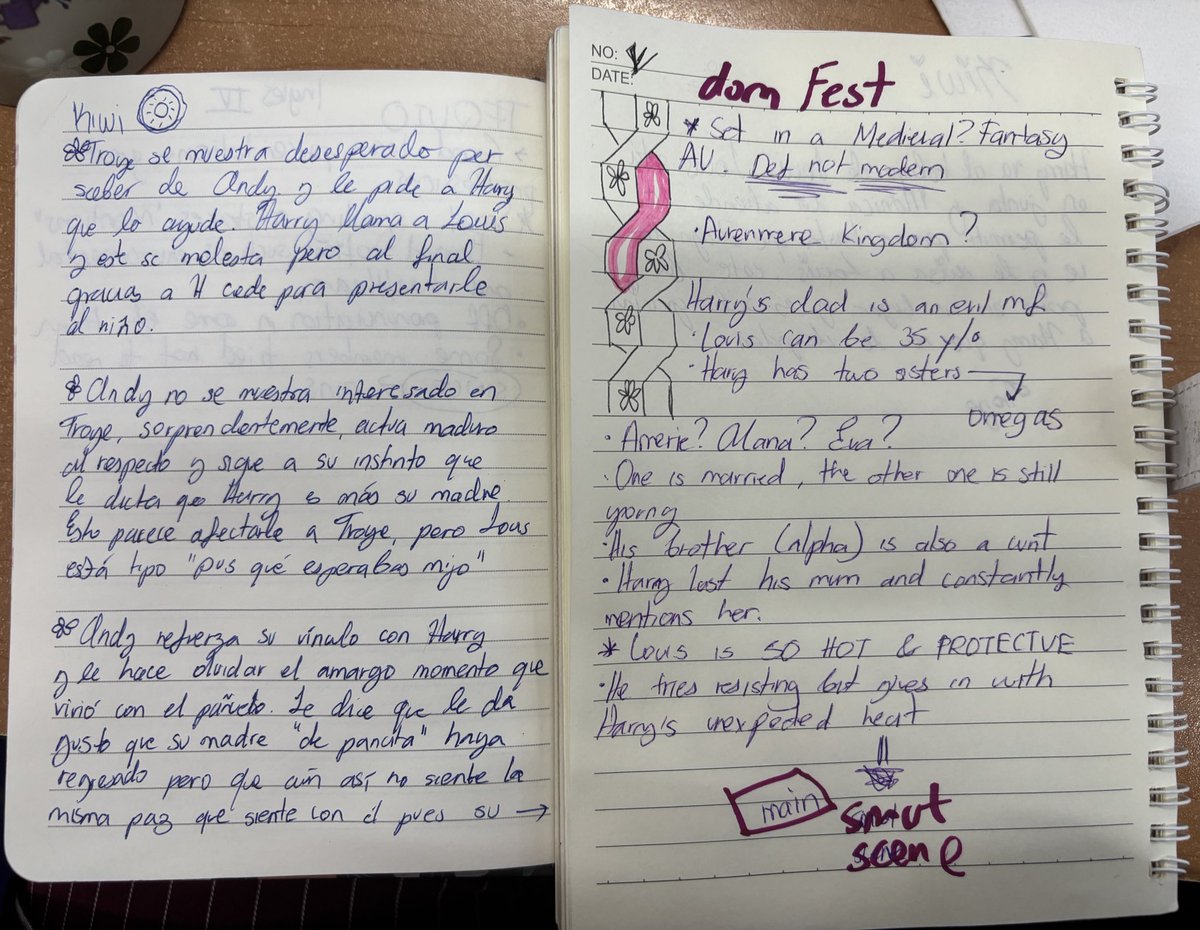 Kiwi
Troye se muestra desesperado por
saber de Andy y le pide a Harry
que lo ayude. Harry llama a Louis
y est se molesta pero al final
gracias a H cede para presentarle
al niño.
Andy no se muestra interesado en
Troye, sorprendentemente, actua maduro
al respecto y sigue a su instinto que
le dicta que Harry es más su madre.
Esto parece afectarle a Troye, pero Louis
está tipo "pus qué esperabas mijo"
Andy refuerza su vínculo con Harry
y le hace olvidar el amargo momento que
vivió con el pañuelo. Le dice que le da
gusto que su madre "de pancita" haya
regresado pero que aún así no siente la
misma paz que siente con él pues su →
NO:
DATE:
dom Fest
* Set in a Medieval? Fantasy
AU. Def not modern
· Aurenmere Kingdom?
Harry's dad is an evil mf
· Louis can be 35 y/o
· Harry has two sisters →
omegas
· Amerie? Alana? Eva?
· One is married, the other one is still
young
· His brother (alpha) is also a cunt
· Harry lost his mum and constantly
mentions her.
* Louis is SO HOT & PROTECTIVE
· He tries resisting but gives in with
Harry's unexpected heat
main
smut
scene